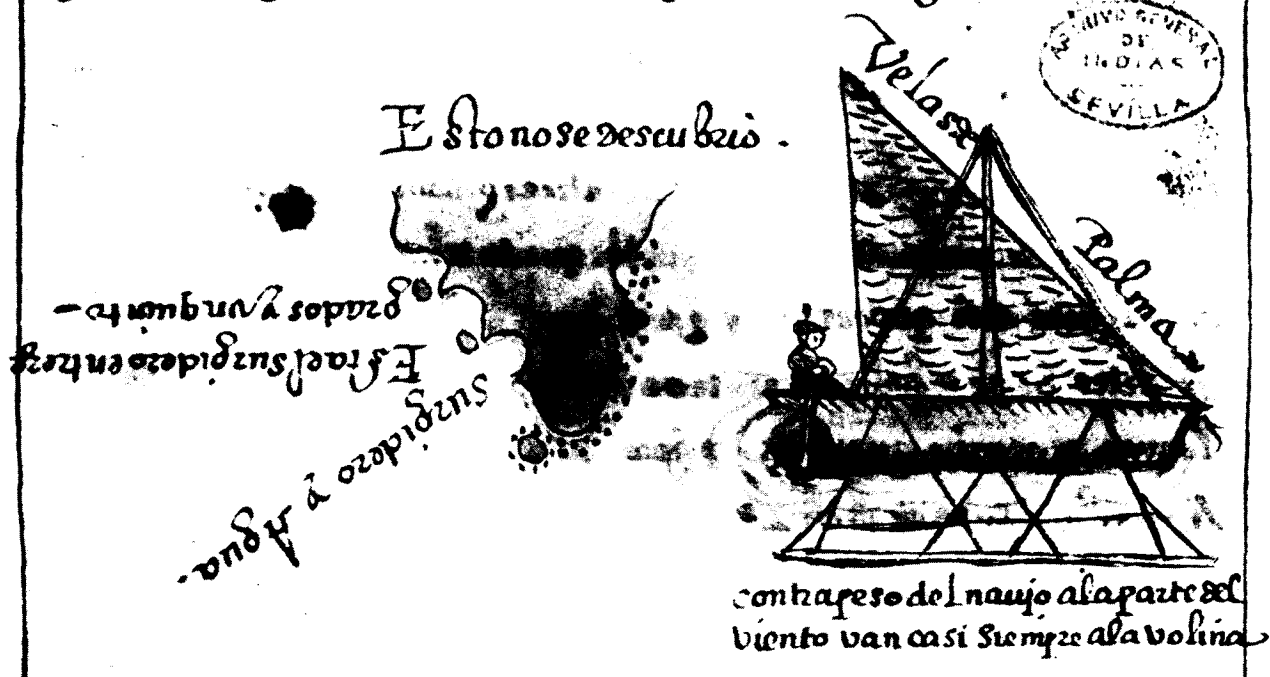 ARCHIVO GENERAL
DE
INDIAS
SEVILLA
Velas de
Palma
Esto no se descubrio.
Esta el surgidero en treze
grados y un quinto
surgidero y Agua.
contrapeso del nauio a la parte del
viento van casi siempre a la volina